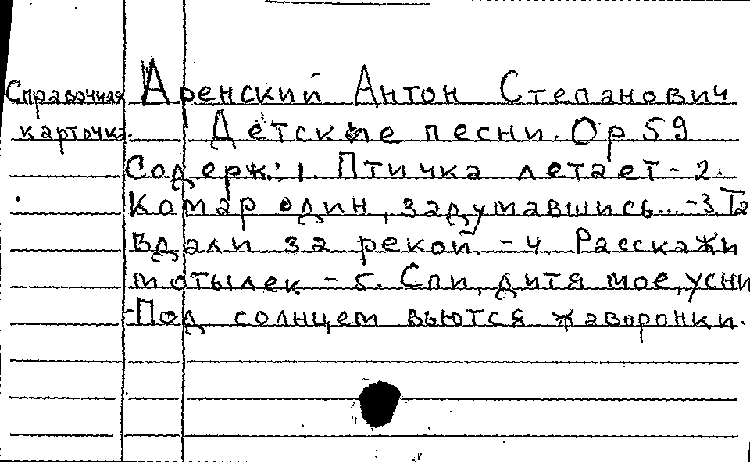 Справочная Аренский Антон Степанович
карточка. Детские песни. Op 59
Содерж.: 1. Птичка летает - 2.
Комар один, задумавшись... - 3. Та
вдали за рекой. - 4. Расскажи
мотылек - 5. Спи, дитя мое, усни
- Под солнцем вьются жаворонки.